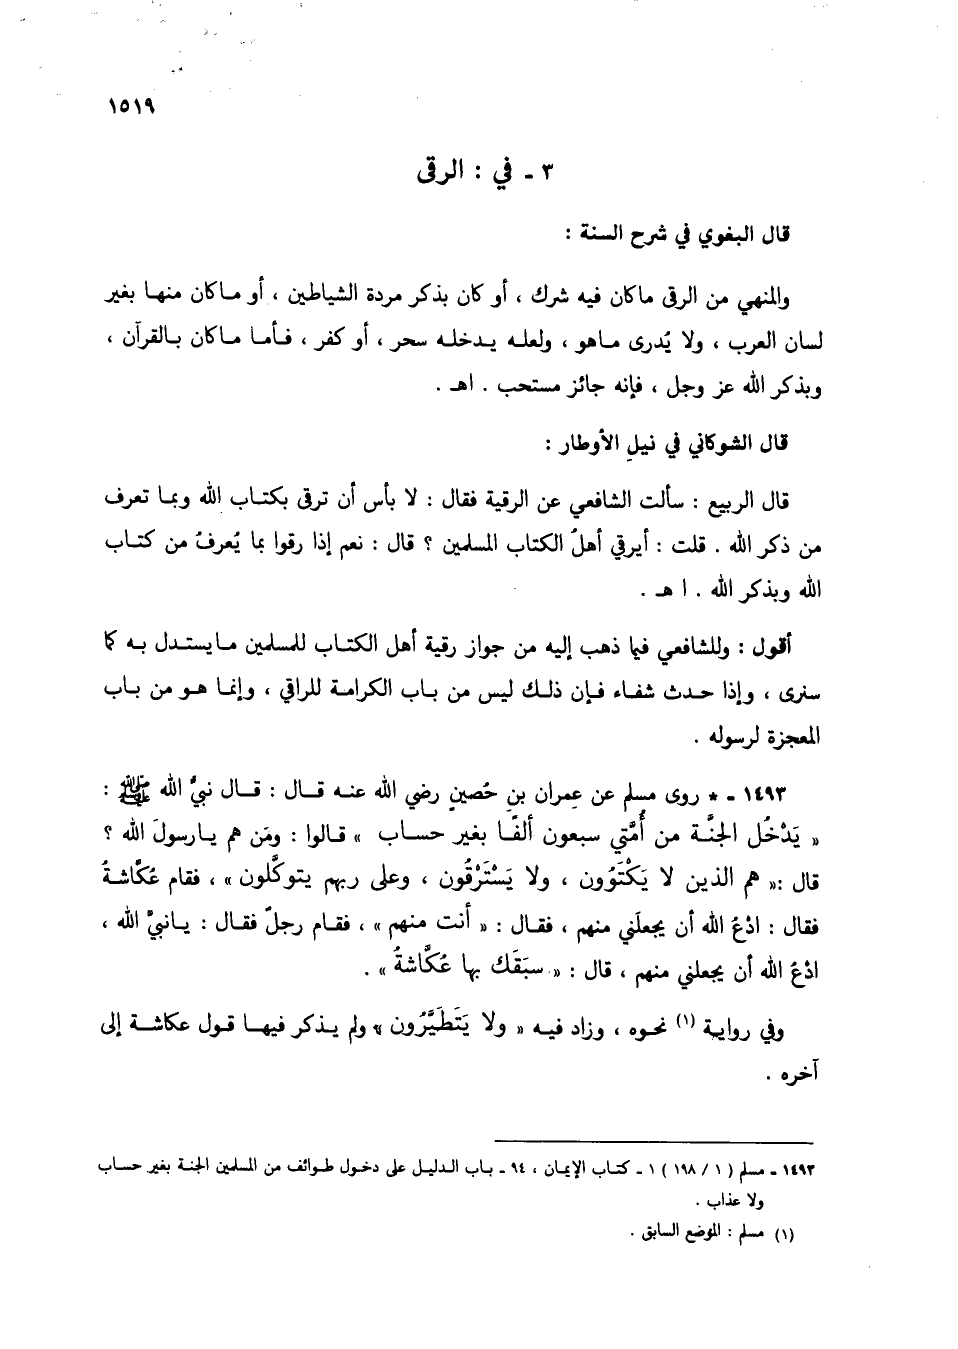 ١٥١٩
٣ ـ في : الرقى
قال البغوي في شرح السنة :
والمنهي من الرقى ماكان فيه شرك ، أو كان بذكر مردة الشياطين ، أو ماكان منها بغير
لسان العرب ، ولا يُدرى ماهو ، ولعله يدخله سحر ، أو كفر ، فأما ماكان بالقرآن ،
وبذكر الله عز وجل ، فإنه جائز مستحب . اهـ .
قال الشوكاني في نيل الأوطار :
قال الربيع : سألت الشافعي عن الرقية فقال : لا بأس أن ترقى بكتاب الله وبما تعرف
من ذكر الله . قلت : أيرقي أهلُ الكتاب المسلمين ؟ قال : نعم إذا رقوا بما يُعرفُ من كتاب
الله وبذكر الله . ا هـ .
أقول : وللشافعي فيما ذهب إليه من جواز رقية أهل الكتاب للمسلمين مايستدل به كما
سنرى ، وإذا حدث شفاء فإن ذلك ليس من باب الكرامة للراقي ، وإنما هو من باب
المعجزة لرسوله .
١٤٩٣ ـ * روى مسلم عن عمران بنِ حُصينٍ رضي الله عنه قال : قال نبيُّ الله ﷺ :
« يَدْخُل الجنَّة من أُمَّتي سبعون ألفًا بغير حساب » قالوا : ومَن هم يارسولَ الله ؟
قال :« هم الذين لا يَكْتَوُون ، ولا يَسْتَرْقُون ، وعلى ربهم يتوكَّلون » ، فقام عُكَّاشةُ
فقال : ادْعُ الله أن يجعلَني منهم ، فقال : « أنت منهم » ، فقام رجلٌ فقال : يانبيَّ الله ،
ادْعُ الله أن يجعلني منهم ، قال : « سبَقَك بها عُكَّاشةُ » .
وفي رواية (١) نحوه ، وزاد فيه « ولا يَتَطَيَّرُون » ولم يذكر فيها قول عكاشة إلى
آخره .
١٤٩٣ ـ مسلم ( ١ / ١٩٨ ) ١ ـ كتاب الإيمان ، ٩٤ ـ باب الدليل على دخول طوائف من المسلمين الجنة بغير حساب
ولا عذاب .
(١) مسلم : الموضع السابق .